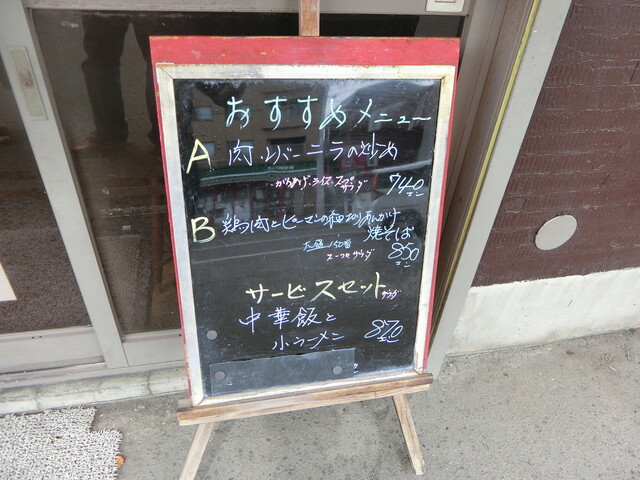 おすすめメニュー
A 肉・レバーニラの炒め
ライス・スープ
サラダ
740
エン
B 鶏肉とピーマンの細切りあんかけ
焼そば
850
スープ サラダ
エン
サービスセット サラダ
中華飯と
小ラーメン 870
エン